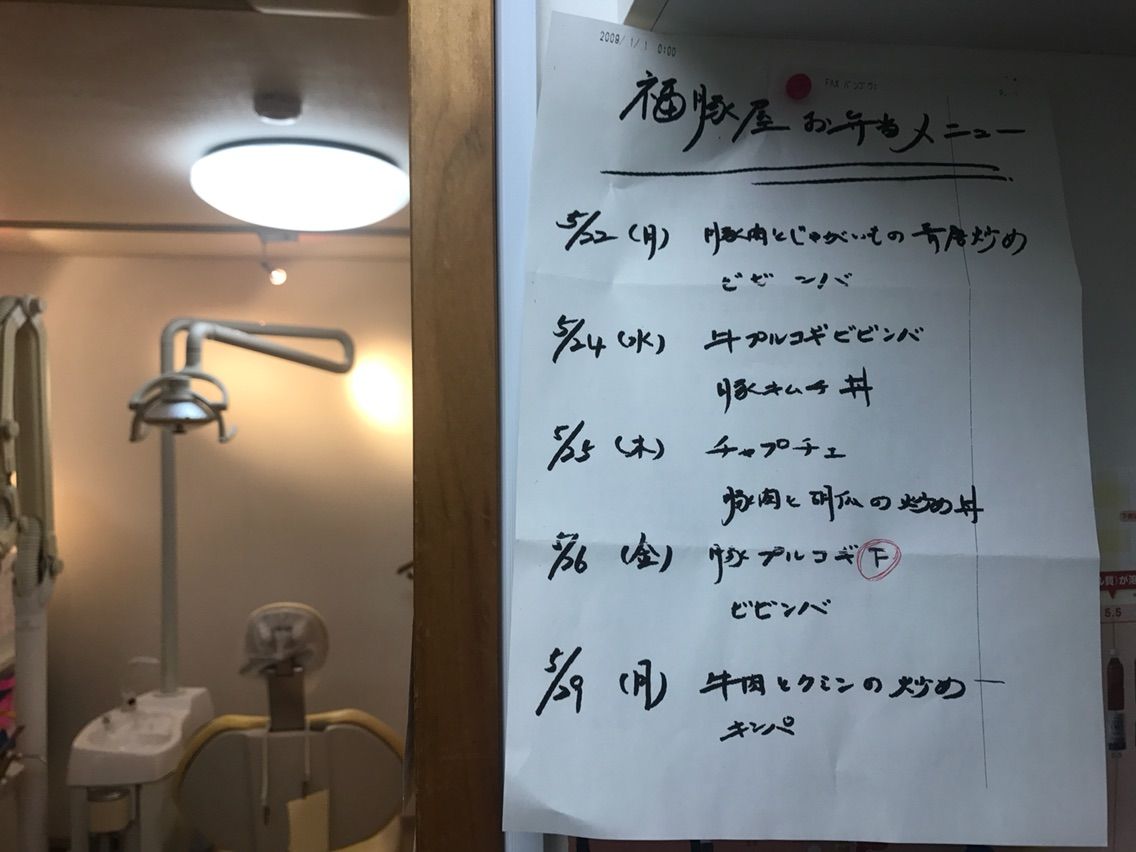 2009/ 1/ 1 0:00
福豚屋 お弁当メニュー
5/22 (月) 豚肉とじゃがいもの 炒め
ビビンバ
5/24 (水) 牛プルコギビビンバ
豚キムチ丼
5/25 (木) チャプチェ
豚肉と胡瓜の炒め丼
5/26 (金) 豚プルコギ 下
ビビンバ
5/29 (月) 牛肉とクミンの炒め
キンパ
5.5